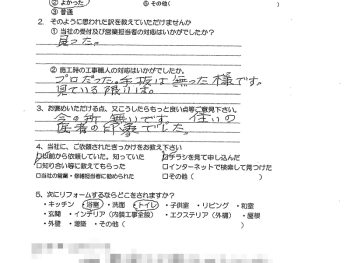 ② よかった ⑤ その他(
③ 普通
2. そのように思われた訳を教えていただけませんか
① 当社の受付及び営業担当者の対応はいかがでしたか?
良った。
② 施工時の工事職人の対応はいかがでしたか。
プロだった。手抜は無った様です。
見ている限りは。
3. お褒めいただける点、又こうしたらもっと良い点等ご意見下さい。
今の所無いです。住いの
医者の印象でした。
4. 当社に、ご依頼されたきっかけをお教え下さい
□以前から依頼していた。知っていた □チラシを見て申し込んだ
□知り合い等に教えてもらった □インターネットで検索して見つけた
□当社の営業・修繕担当者に勧められた □その他( )
5. 次にリフォームするならどこをされますか?
・キッチン ・浴室 ・洗面 ・トイレ ・子供室 ・リビング ・和室
・玄関 ・インテリア(内装工事全般) ・エクステリア(外構) ・屋根
・外壁 ・増築 ・その他( )